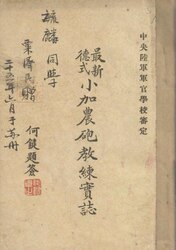 中央陸軍軍官學校審定
最新
德式
小加農砲教練實誌
何鍰題簽
毓麟同學
葉濟民贈
二十三年六月于蘇州